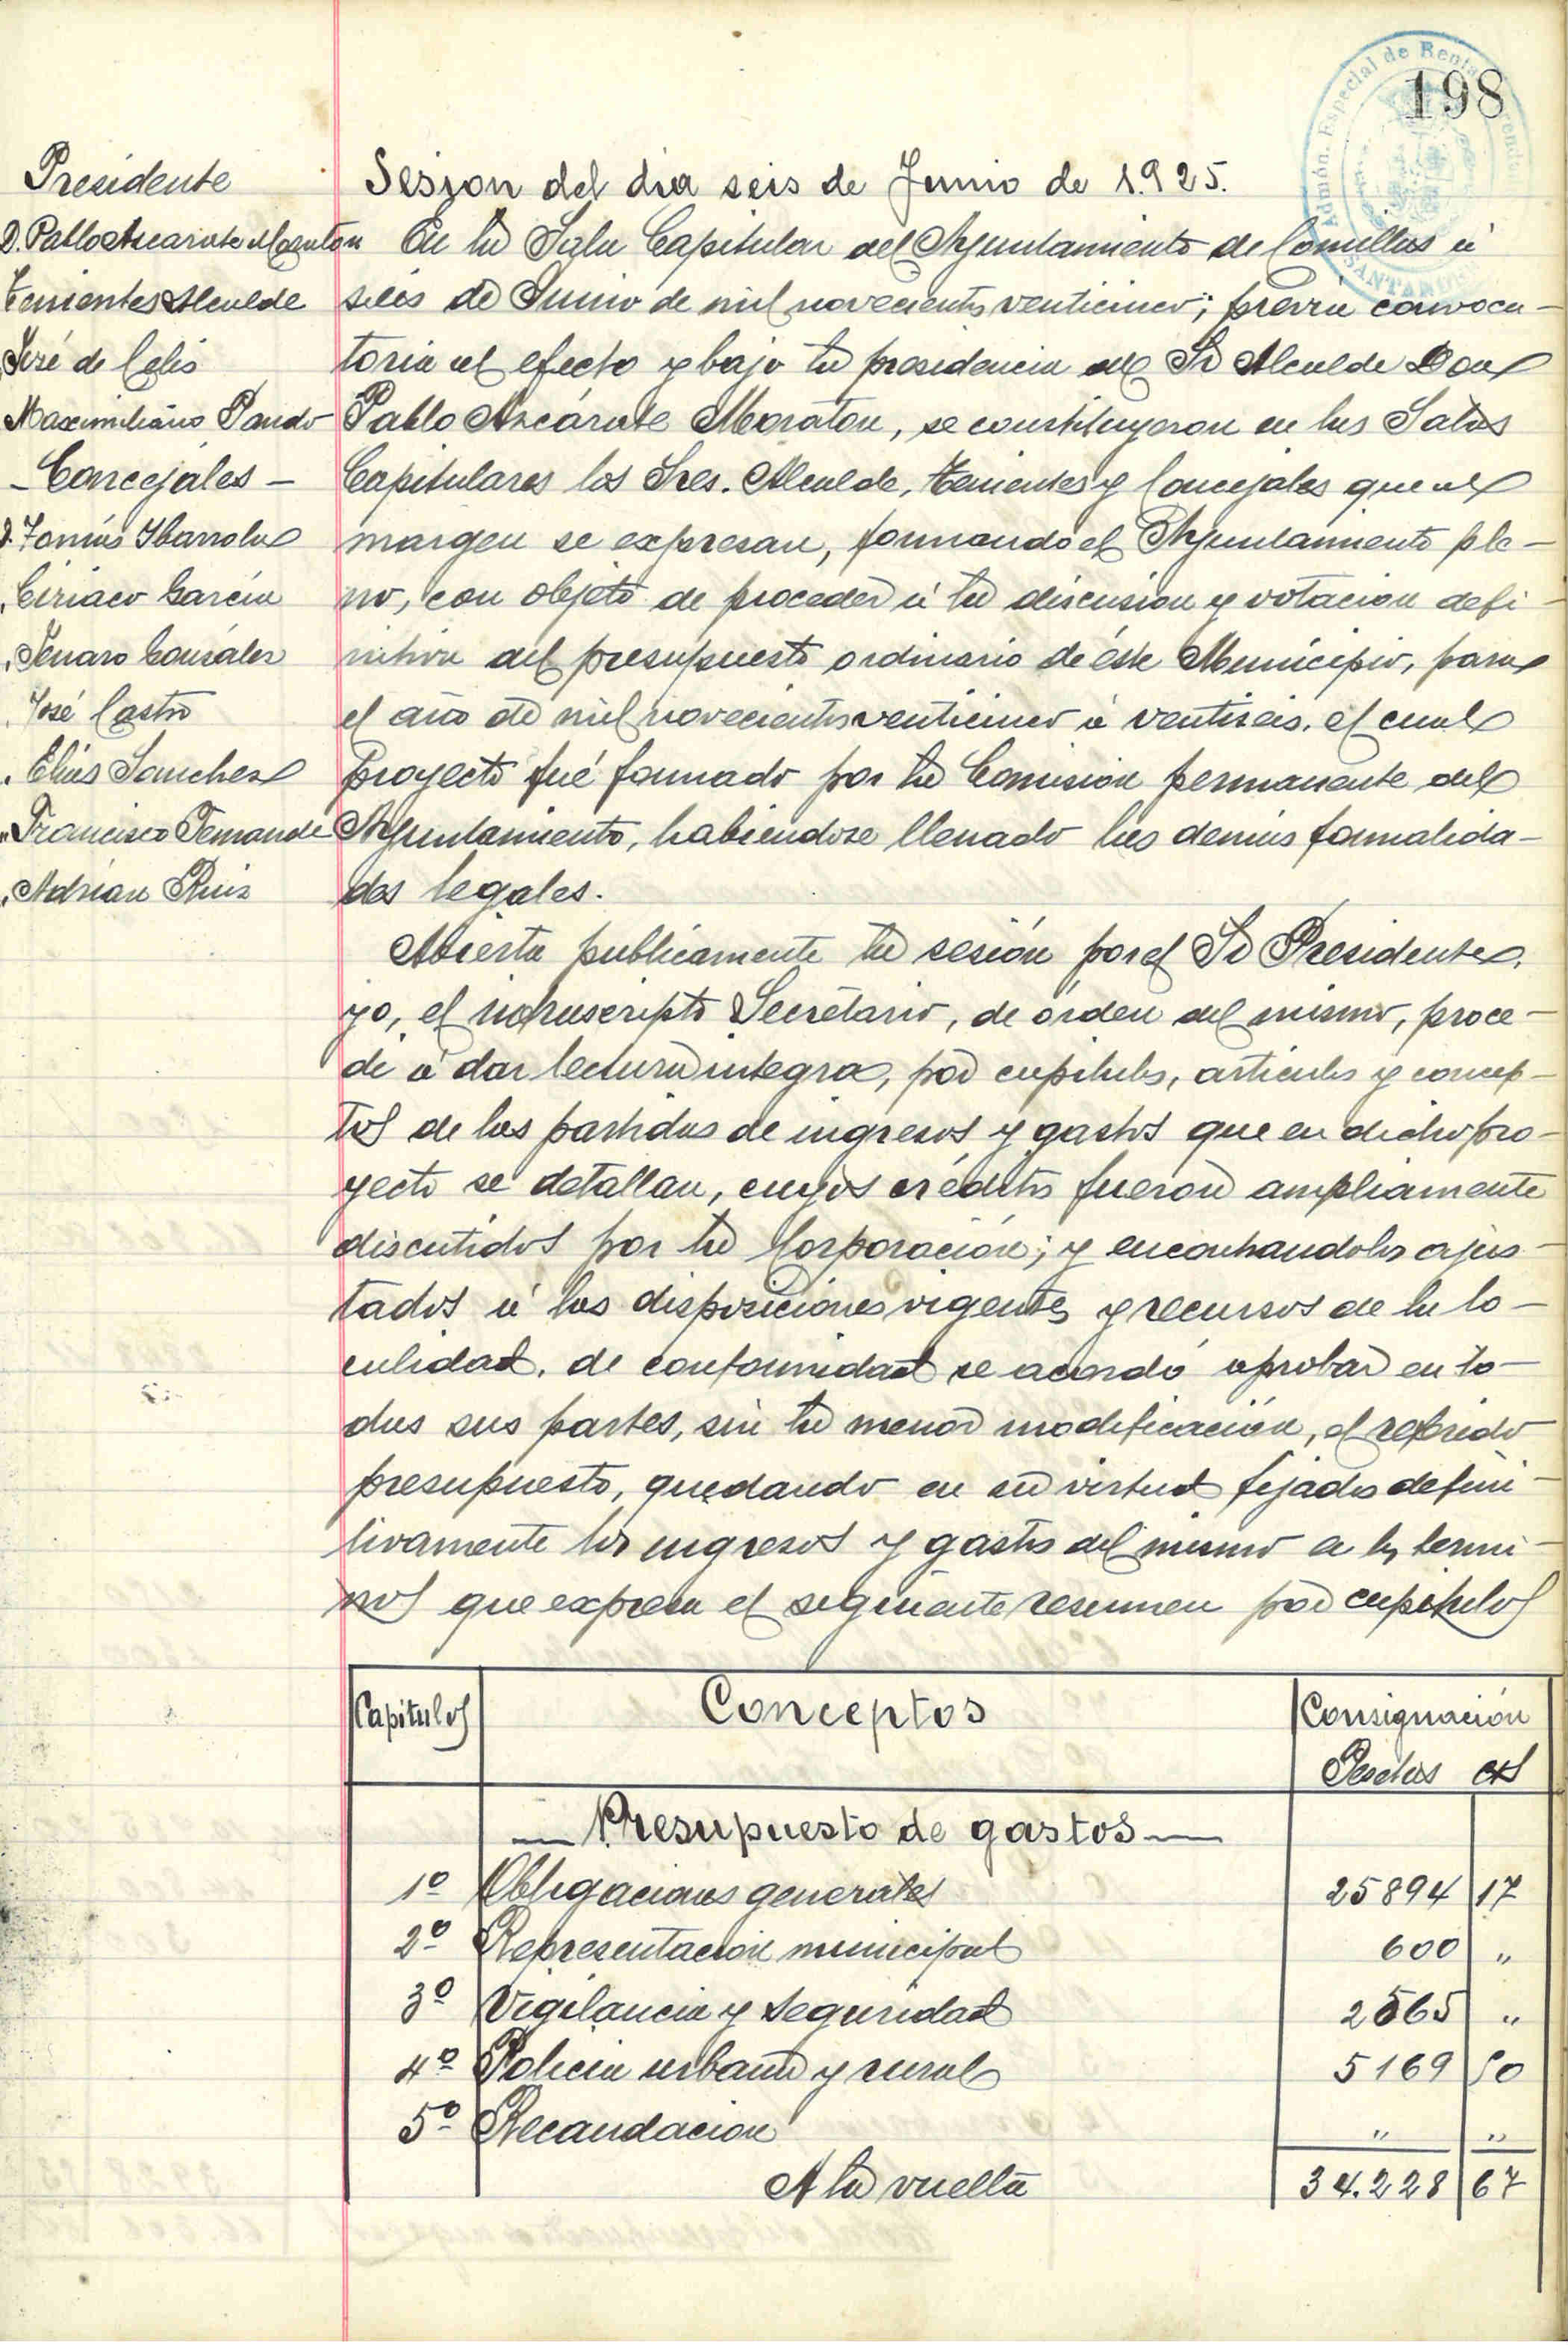 198
Admón. Especial de Rentas Arrendadas
SANTANDER
Presidente
D. Pablo Azcarate Moraton
Tenientes Alcalde
José de Celis
Maximiliano Pando
- Concejales -
D. Tomás Ibarrola
Ciriaco Garcia
Genaro Gonzalez
José Castro
Elias Sanchez
Francisco Fernande
Adrián Ruiz
Sesion del dia seis de Junio de 1.925.
En la Sala Capitular del Ayuntamiento de Comillas á
seis de Junio de mil novecientos venticinco; previa convoca-
toria al efecto y bajo la presidencia del Sr Alcalde Don
Pablo Azcárate Moratón, se constituyeron en las Salas
Capitulares los Sres. Alcalde, tenientes y Concejales que al
margen se expresan, formando el Ayuntamiento ple-
no, con objeto de proceder á la discusion y votacion defi-
nitiva del presupuesto ordinario de éste Municipio, para
el año de mil novecientos venticinco á ventiseis, el cual
proyecto fué formado por la Comision permanente del
Ayuntamiento, habiendose llenado las demás formalida-
des legales.
Abierta publicamente la sesión por el Sr Presidente,
yo, el infrascripto Secretario, de órden del mismo, proce-
di á dar lectura integra, por capitulos, articulos y concep-
tos de las partidas de ingresos y gastos que en dicho pro-
yecto se detallan, cuyos créditos fueron ampliamente
discutidos por la Corporación; y encontrandolos ajus-
tados á las disposiciones vigentes y recursos de la lo-
calidad, de conformidad se acordó aprobar en to-
das sus partes, sin la menor modificación, el referido
presupuesto, quedando en su virtud fijados defini-
tivamente los ingresos y gastos del mismo a los termi-
nos que expresa el siguiente resumen por capitulos
Capitulos Conceptos Consignación
Pesetas cts
- Presupuesto de gastos -
1º Obligaciones generales 25894 17
2º Representación municipal 600 "
3º Vigilancia y seguridad 2565 "
4º Policia urbana y rural 5169 50
5º Recaudacion " "
A la vuelta 34.228 67